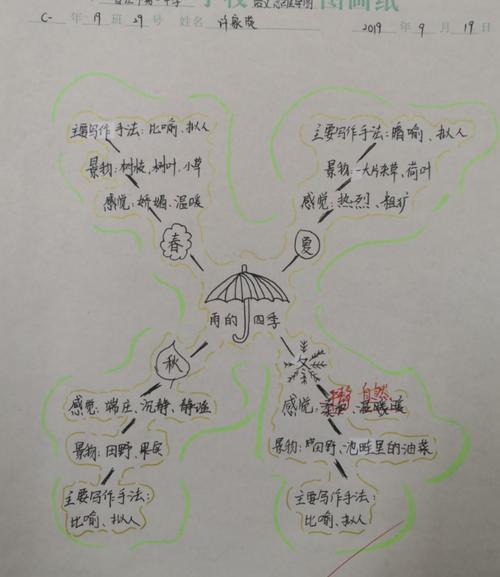 学校 图画纸
C- 年 19 班 29 号 姓名 许家
2019 年 9 月 19 日
主要写作手法:比喻、拟人
景物:树枝,树叶,小草
感觉:娇媚、温暖
春
主要写作手法:暗喻、拟人
景物:一大片禾草,荷叶
感觉:热烈、粗犷
夏
雨的四季
秋
感觉:端庄、沉静、静谧
景物:田野、果实
主要写作手法:
比喻、拟人
冬
自然
感觉:
景物:田野、池畦里的油菜
主要写作手法:
比喻、拟人